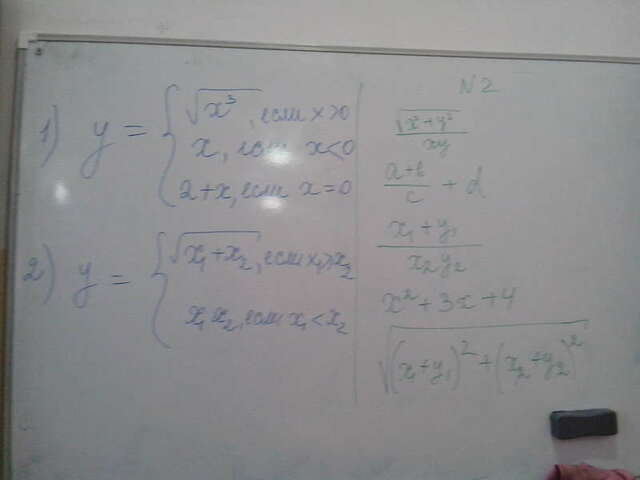 1) y = { √x³, если x>0
x, если x<0
2+x, если x=0
2) y = { √x₁+x₂, если x₁⩾x₂
x₁x₂, если x₁<x₂
N2
√x²+y² / xy
a+b / c + d
x₁+y₁ / x₂y₂
x²+3x+4
√(x₁+y₁)²+(x₂+y₂)²